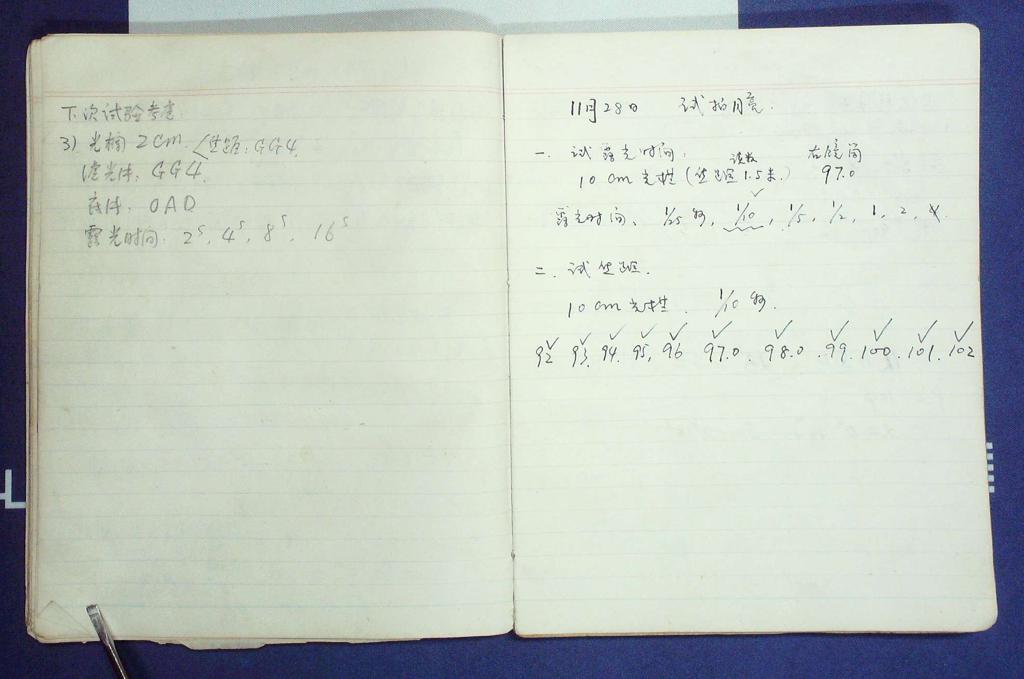 下次试验考虑
3) 光栏 2cm. 焦距: GG4.
滤光片: GG4.
底片: OAD
露光时间: 2ˢ, 4ˢ, 8ˢ, 16ˢ
11月28日 试拍月亮.
一. 试露光时间:
读数 右镜筒
10 cm 光栏 (焦距 1.5米.) 97.0
露光时间、 1/25 秒, 1/10, 1/5, 1/2, 1, 2,
二. 试焦距.
10 cm 光栏. 1/10 秒.
92 93. 94. 95. 96 97.0. 98.0. 99. 100. 101. 102